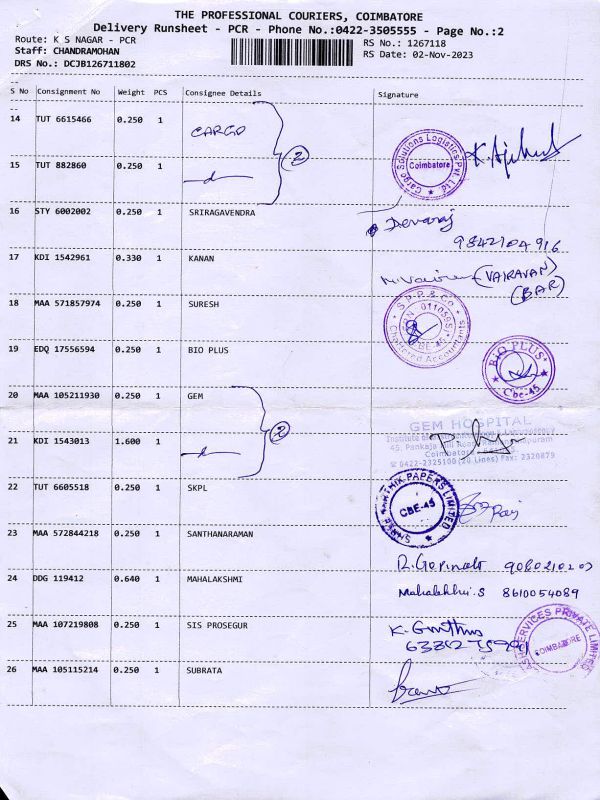 THE PROFESSIONAL COURIERS, COIMBATORE
Delivery Runsheet - PCR - Phone No.:0422-3505555 - Page No.:2
Route: K S NAGAR - PCR
Staff: CHANDRAMOHAN
DRS No.: DCJB126711802
RS No.: 1267118
RS Date: 02-Nov-2023
S No Consignment No Weight PCS Consignee Details Signature
14 TUT 6615466 0.250 1 CARGO
2
Cargo Solutions Logistics Pvt. Ltd.
Coimbatore
15 TUT 882860 0.250 1
16 STY 6002002 0.250 1 SRIRAGAVENDRA Devaraj
9842104916
17 KDI 1542961 0.330 1 KANAN (VAIRAVAN)
(BAR)
18 MAA 571857974 0.250 1 SURESH
S.P.R. & Co.
Chartered Accountants
CBE-45
19 EDQ 17556594 0.250 1 BIO PLUS
BIO PLUS
Cbe-45
20 MAA 105211930 0.250 1 GEM
2
GEM HOSPITAL
45, Pankaja Mill Road,
Coimbatore
0422-2325100 (20 Lines) Fax: 2320879
21 KDI 1543013 1.600 1
22 TUT 6605518 0.250 1 SKPL
PAPERS LIMITED
CBE-45
23 MAA 572844218 0.250 1 SANTHANARAMAN
24 DDG 119412 0.640 1 MAHALAKSHMI 8610054089
25 MAA 107219808 0.250 1 SIS PROSEGUR
SERVICES PRIVATE LIMITED
COIMBATORE
26 MAA 105115214 0.250 1 SUBRATA